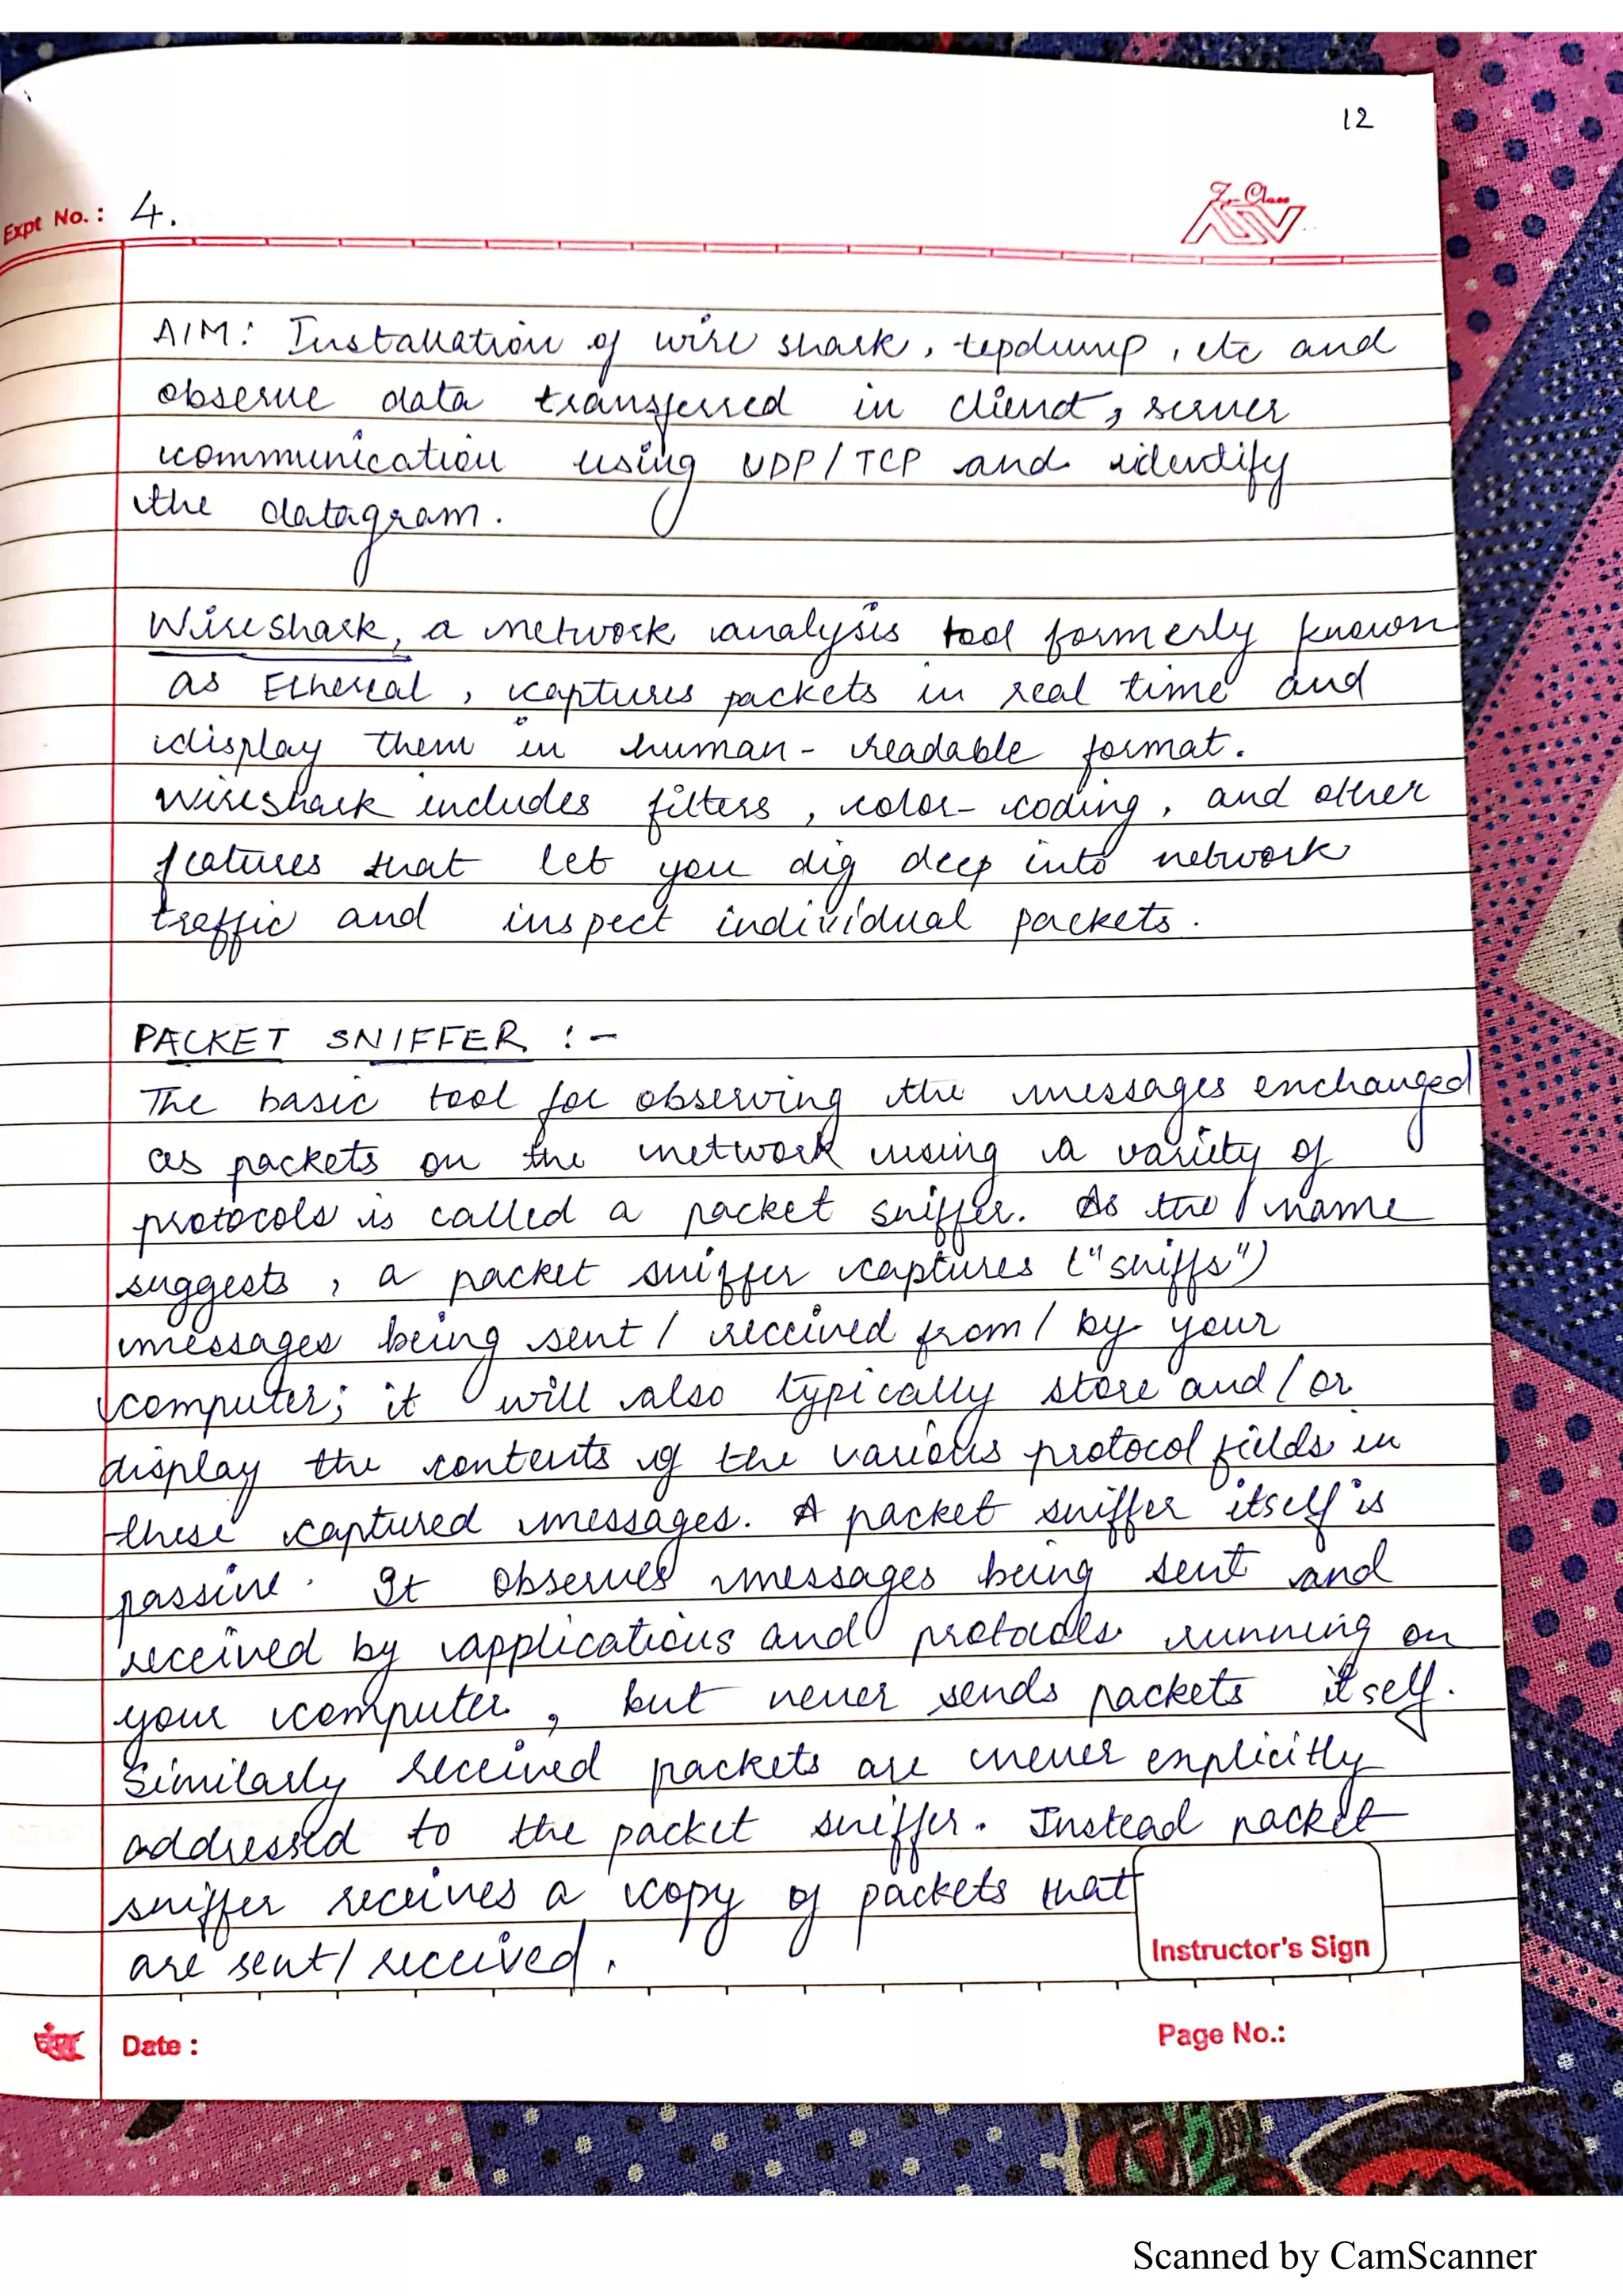 12
Expt No.: 4.
AIM: Installation of wire shark, tcpdump, etc and
observe data transferred in client, server
communication using UDP/TCP and identify
the datagram.
Wireshark, a network analysis tool formerly known
as Ethereal, captures packets in real time and
display them in human-readable format.
Wireshark includes filters, color-coding, and other
features that let you dig deep into network
traffic and inspect individual packets.
PACKET SNIFFER :-
The basic tool for observing the messages exchanged
as packets on the network using a variety of
protocols is called a packet sniffer. As the name
suggests, a packet sniffer captures ("sniffs")
messages being sent/received from/by your
computer; it will also typically store and/or
display the contents of the various protocol fields in
these captured messages. A packet sniffer itself is
passive. It observes messages being sent and
received by applications and protocols running on
your computer, but never sends packets itself.
Similarly received packets are never explicitly
addressed to the packet sniffer. Instead packet
sniffer receives a copy of packets that
are sent/received.
Instructor's Sign
Date :
Page No.:
Scanned by CamScanner